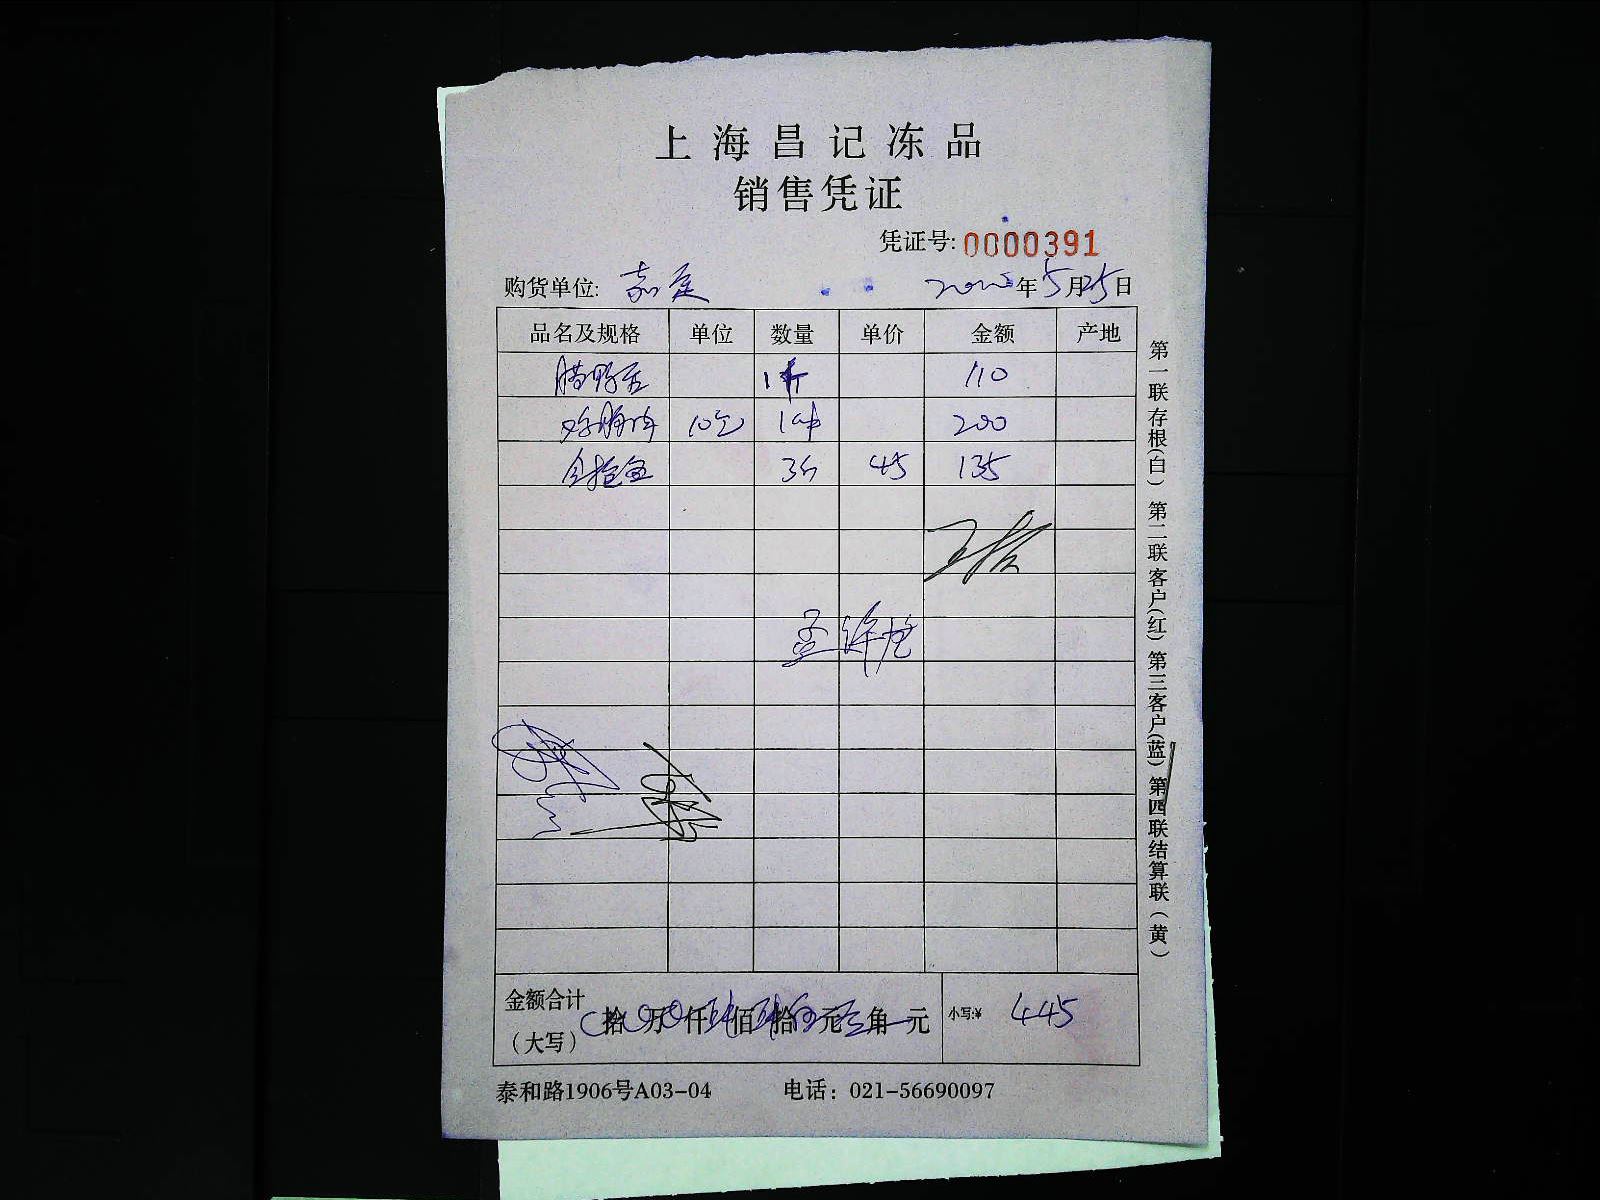 上海昌记冻品
销售凭证
凭证号: 0000391
购货单位: 嘉定 年5月25日
品名及规格 单位 数量 单价 金额 产地
1件 110
10包 1件 200
3斤 45 135
孟
金额合计 拾 万 仟 佰 拾 元 角 元 小写:¥ 445
（大写）
泰和路1906号A03-04 电话：021-56690097
第一联存根(白) 第二联客户(红) 第三客户(蓝) 第四联结算联(黄)